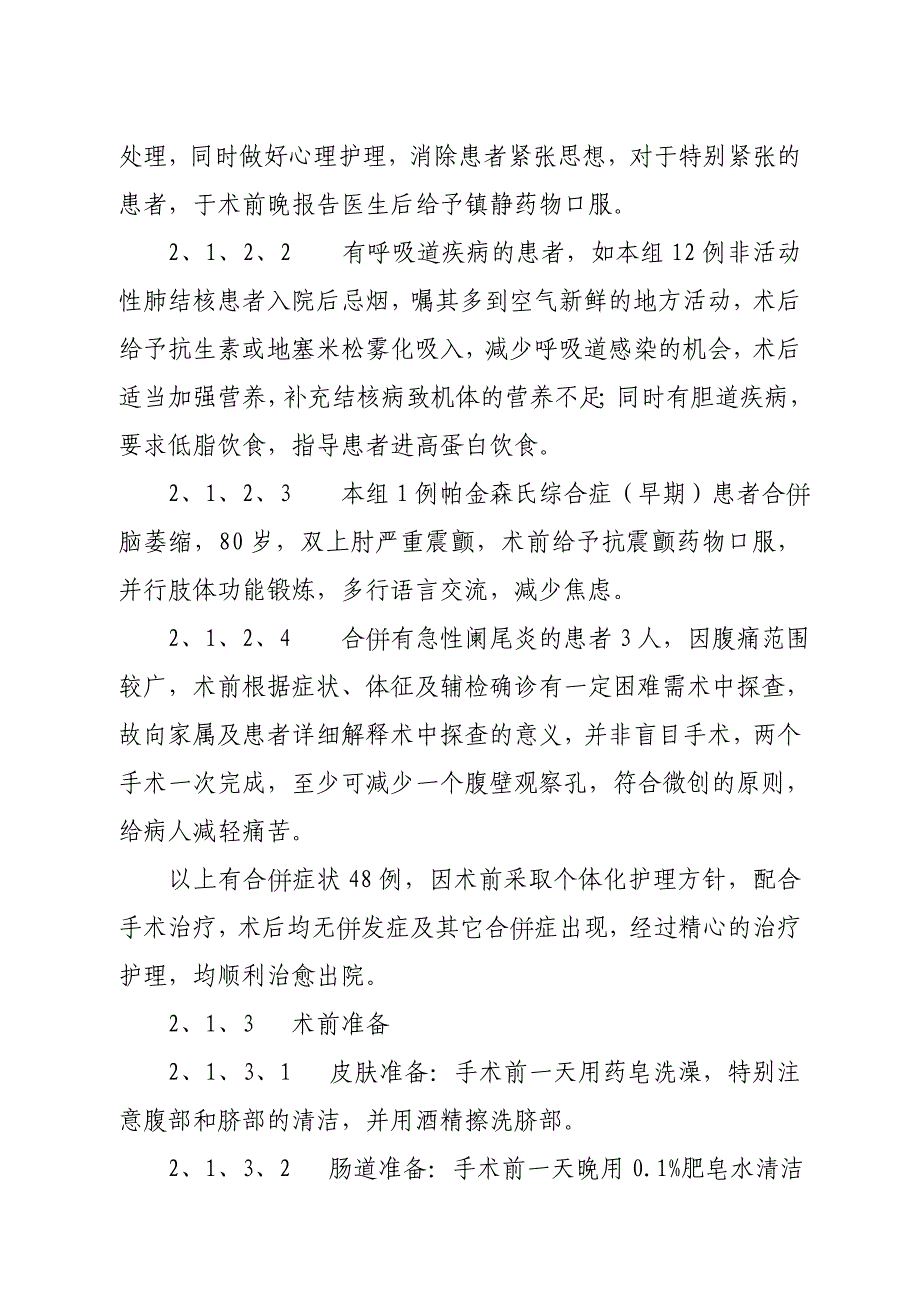 处理，同时做好心理护理，消除患者紧张思想，对于特别紧张的
患者，于术前晚报告医生后给予镇静药物口服。
2、1、2、2 有呼吸道疾病的患者，如本组 12 例非活动
性肺结核患者入院后忌烟，嘱其多到空气新鲜的地方活动，术后
给予抗生素或地塞米松雾化吸入，减少呼吸道感染的机会，术后
适当加强营养，补充结核病致机体的营养不足；同时有胆道疾病，
要求低脂饮食，指导患者进高蛋白饮食。
2、1、2、3 本组 1 例帕金森氏综合症（早期）患者合併
脑萎缩，80 岁，双上肘严重震颤，术前给予抗震颤药物口服，
并行肢体功能锻炼，多行语言交流，减少焦虑。
2、1、2、4 合併有急性阑尾炎的患者 3 人，因腹痛范围
较广，术前根据症状、体征及辅检确诊有一定困难需术中探查，
故向家属及患者详细解释术中探查的意义，并非盲目手术，两个
手术一次完成，至少可减少一个腹壁观察孔，符合微创的原则，
给病人减轻痛苦。
以上有合併症状 48 例，因术前采取个体化护理方针，配合
手术治疗，术后均无併发症及其它合併症出现，经过精心的治疗
护理，均顺利治愈出院。
2、1、3 术前准备
2、1、3、1 皮肤准备：手术前一天用药皂洗澡，特别注
意腹部和脐部的清洁，并用酒精擦洗脐部。
2、1、3、2 肠道准备：手术前一天晚用 0.1%肥皂水清洁